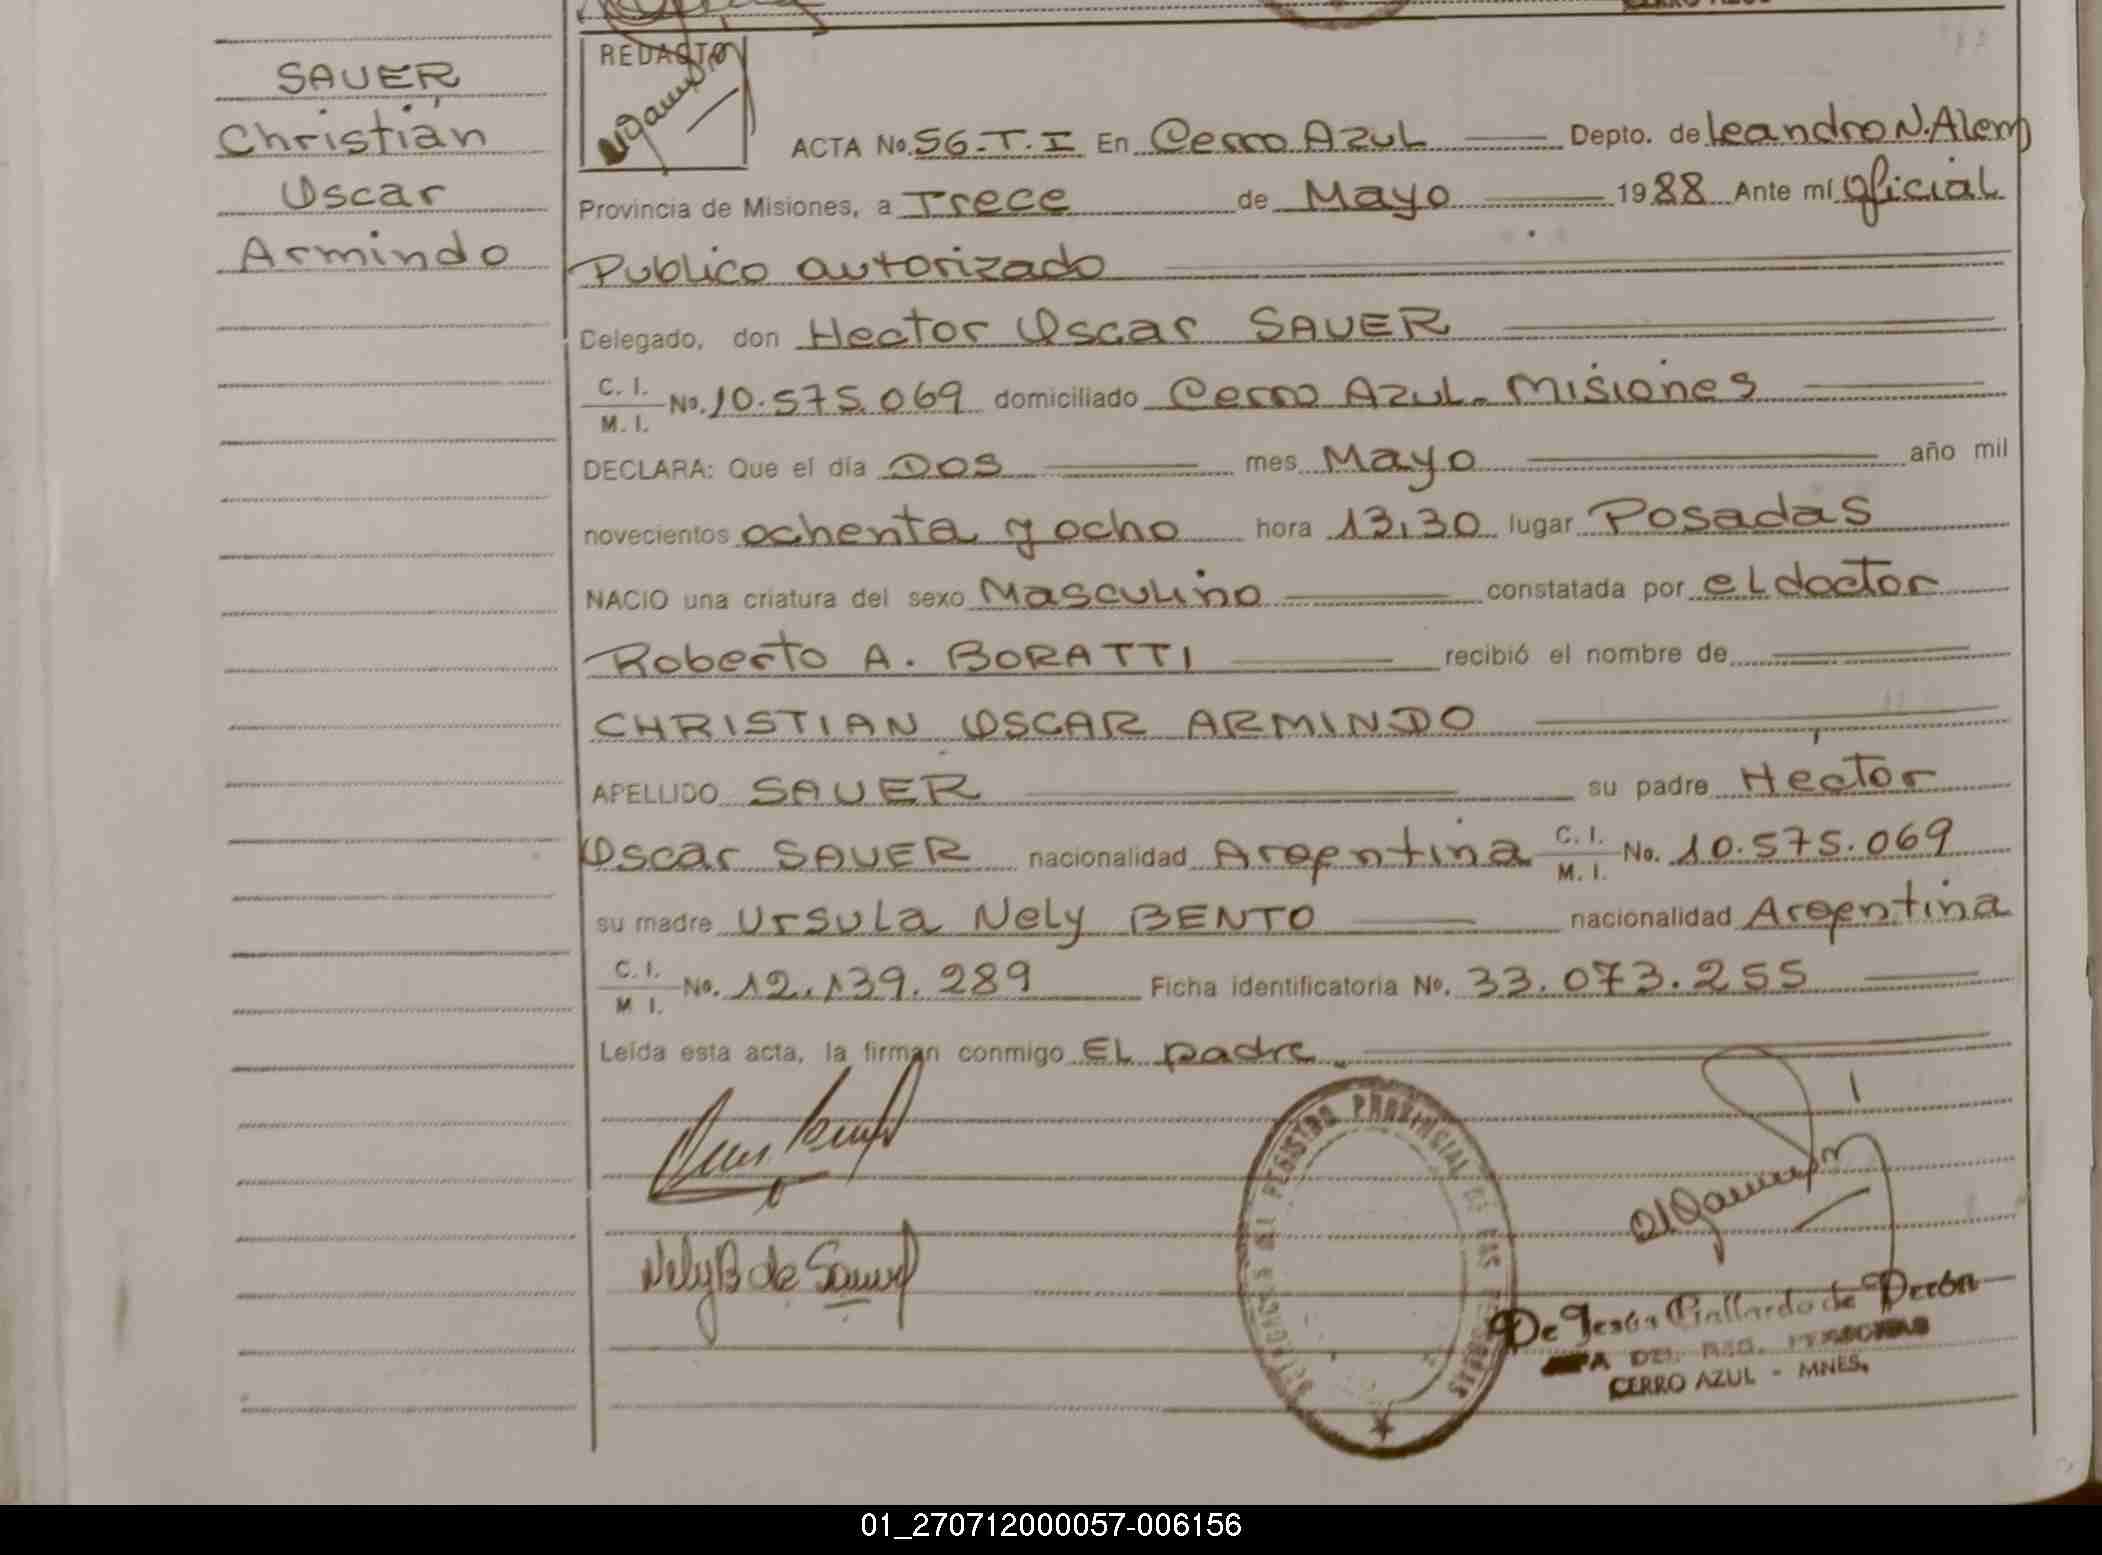 SAUER
Christian
Oscar
Armindo
REDACTO
ACTA No. 56-T.I En Cerro Azul Depto. de Leandro N. Alem
Provincia de Misiones, a Trece de Mayo 1988 Ante mí Oficial
Publico autorizado
Delegado, don Hector Oscar SAUER
C. I.
M. I. No. 10.575.069 domiciliado Cerro Azul. Misiones
DECLARA: Que el día Dos mes Mayo año mil
novecientos ochenta y ocho hora 13,30 lugar Posadas
NACIO una criatura del sexo Masculino constatada por el doctor
Roberto A. BORATTI recibió el nombre de
CHRISTIAN OSCAR ARMINDO
APELLIDO SAUER su padre Hector
Oscar SAUER nacionalidad Argentina C. I.
M. I. No. 10.575.069
su madre Ursula Nely BENTO nacionalidad Argentina
C. I.
M I. No. 12.139.289 Ficha identificatoria No. 33.073.255
Leída esta acta, la firman conmigo El padre
REGISTRO PROVINCIAL DE LAS PERSONAS
Nely B de Sauer
De Jesús Gallardo de Perón
DEL REG. PERSONAS
CERRO AZUL - MNES.
01_270712000057-006156